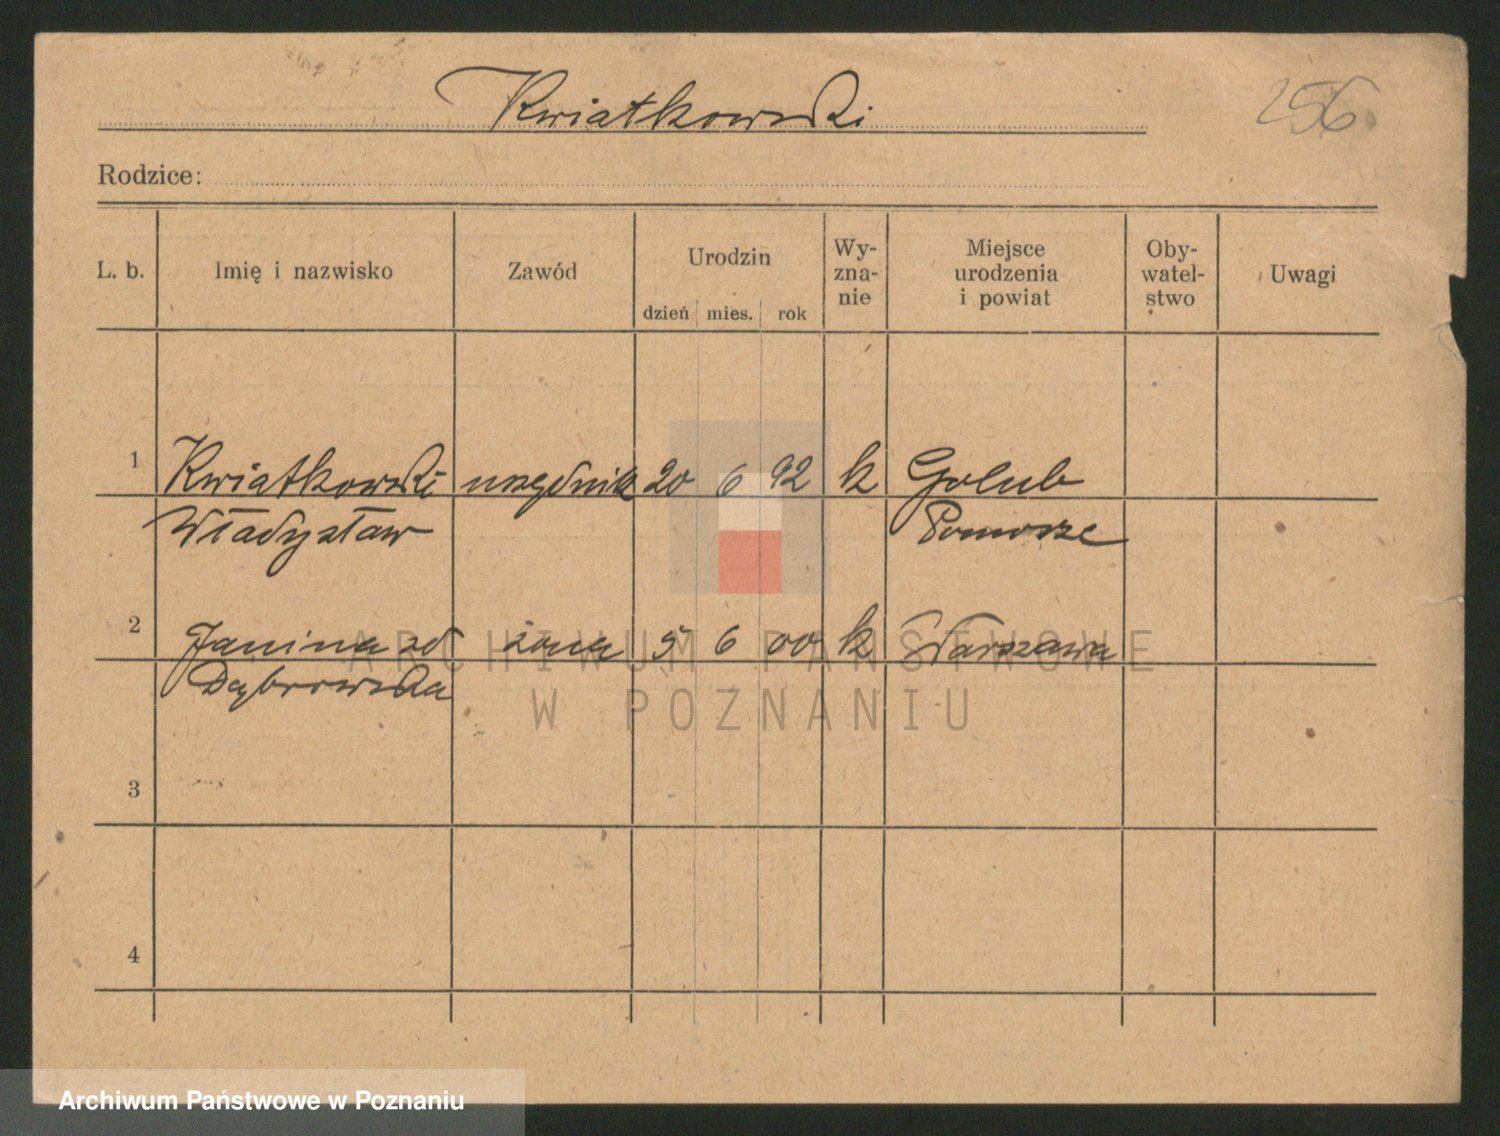 Kwiatkowski
256
Rodzice:
L. b. Imię i nazwisko Zawód Urodzin dzień mies. rok Wy-zna-nie Miejsce urodzenia i powiat Oby-watel-stwo Uwagi
1 Kwiatkowski urzędnik 20 6 92 k Golub
Władysław Pomorze
2 Janina zd żona 5 6 00 k Warszawa
Dąbrowska
3
4
ARCHIWUM PAŃSTWOWE
W POZNANIU
Archiwum Państwowe w Poznaniu